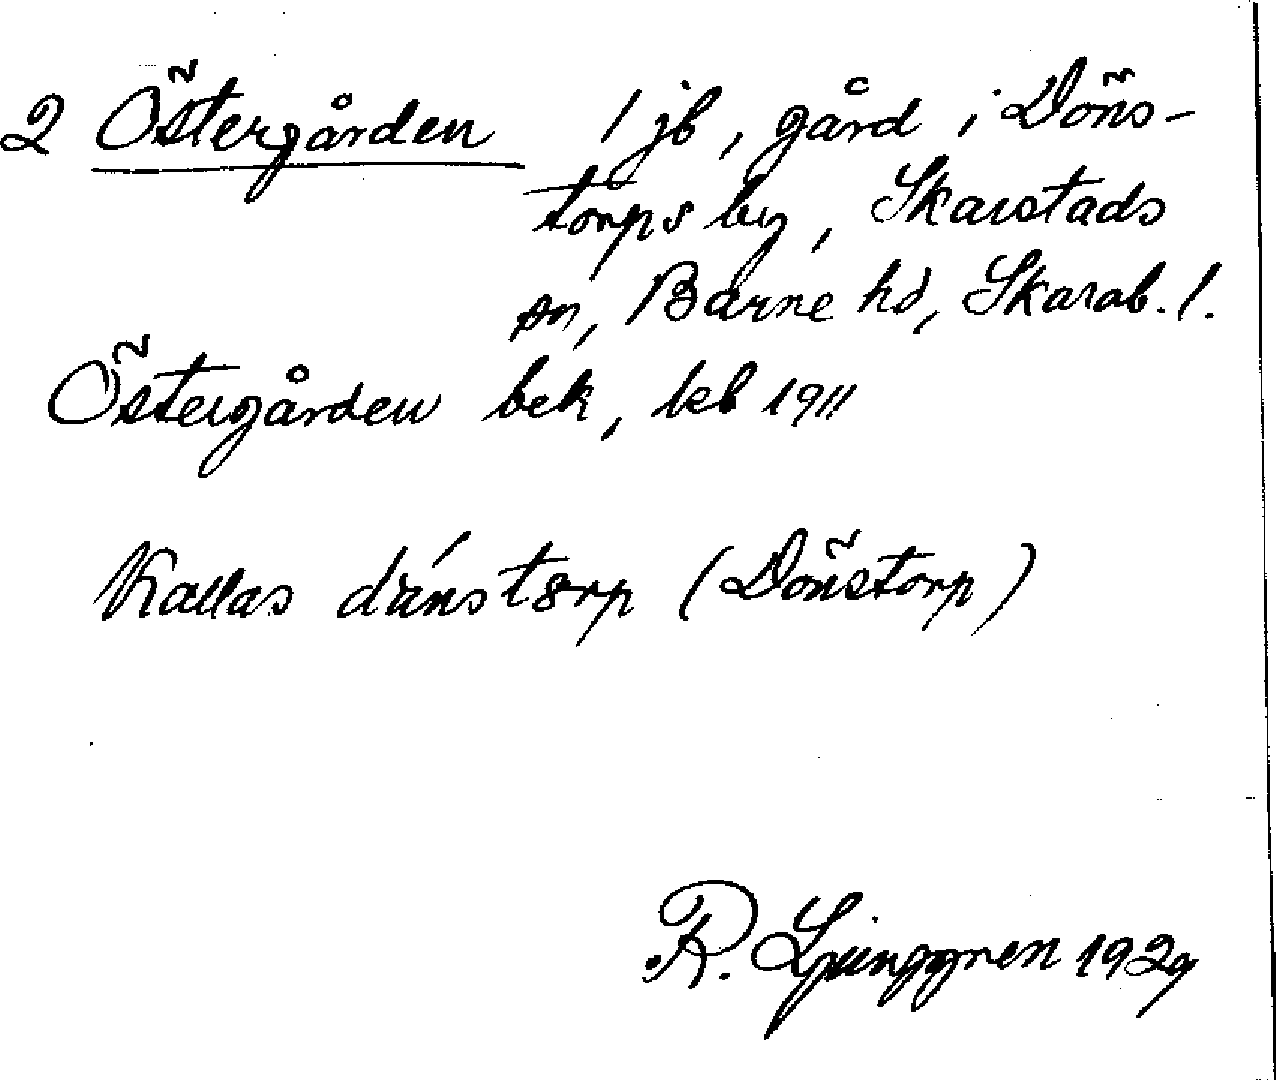 2 Östergården 1 jb, gård i Döns-
torps by, Skarstads
sn, Barne hd, Skarab. l.
Östergården bek, kb 1911
Kallas (Dönstorp)
R. Ljunggren 1929